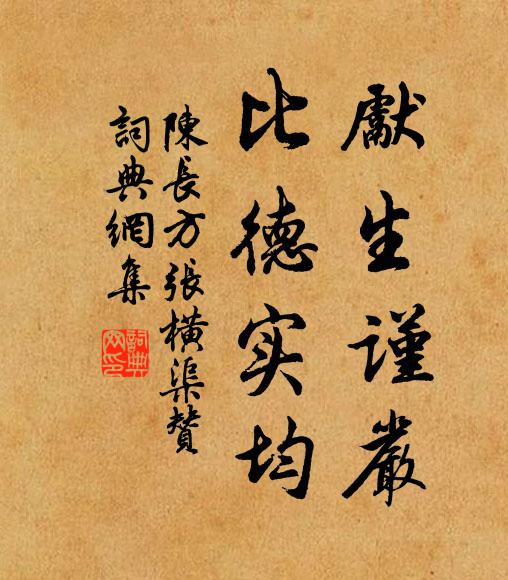 獻生謹嚴
比德实均
陳長方張橫渠贊
詞典網集
詞典
网印